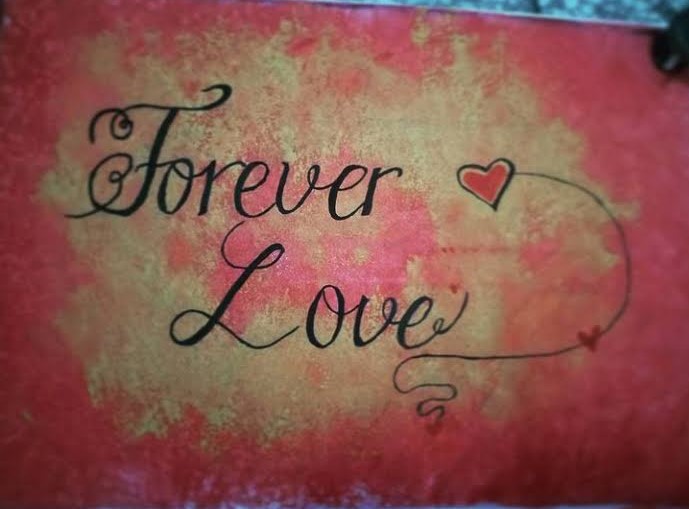 Forever
Love